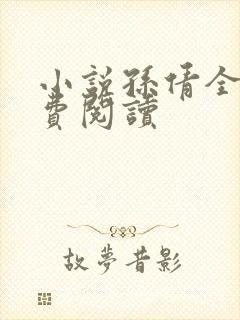 小說孫倩全
費閱讀
故夢昔影